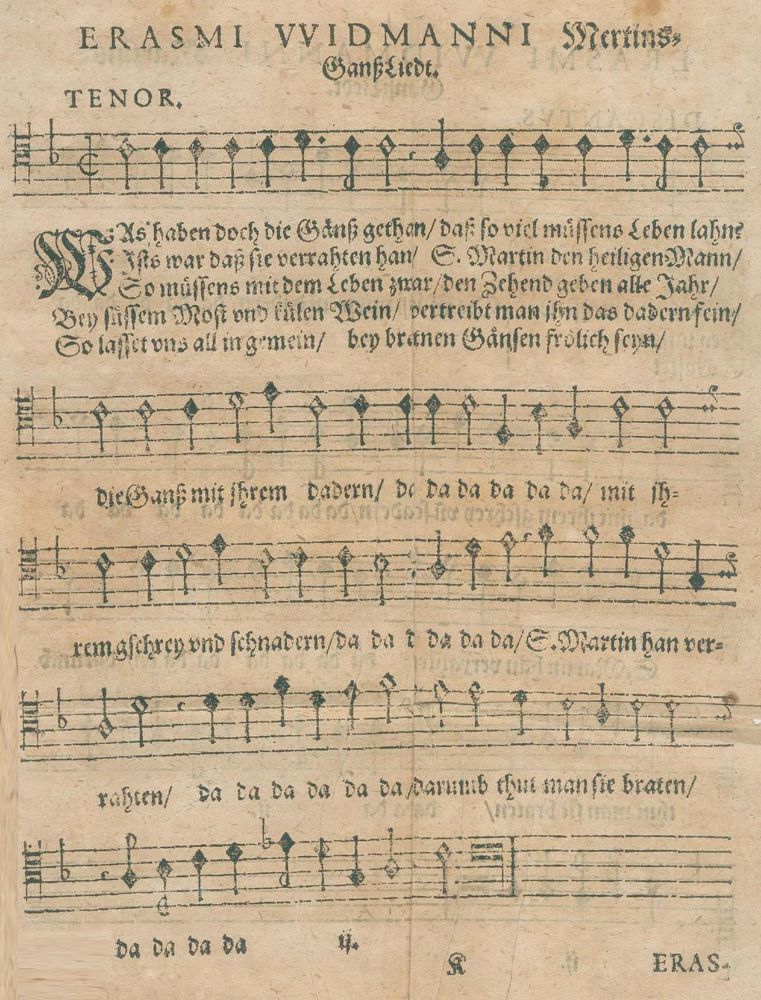 ERASMI VVIDMANNI Mertins⸗
Ganß Liedt.
TENOR.
WAs haben doch die Gänß gethan/ daß so viel müssens Leben lahn?
Ists war daß sie verrahten han/ S. Martin den heiligen Mann/
So müssens mit dem Leben zwar/ den Zehend geben alle Jahr/
Bey süssem Most vnd külen Wein/ vertreibt man jhn das dadern fein/
So lasset vns all in gemein/ bey bratnen Gänsen frölich seyn/
die Ganß mit jhrem dadern/ da da da da da da/ mit jh⸗
rem gschrey vnd schnadern/ da da d da da da/ S. Martin han ver⸗
rahten/ da da da da da da/ darumb thut man sie braten/
da da da da ij.
K ERAS⸗